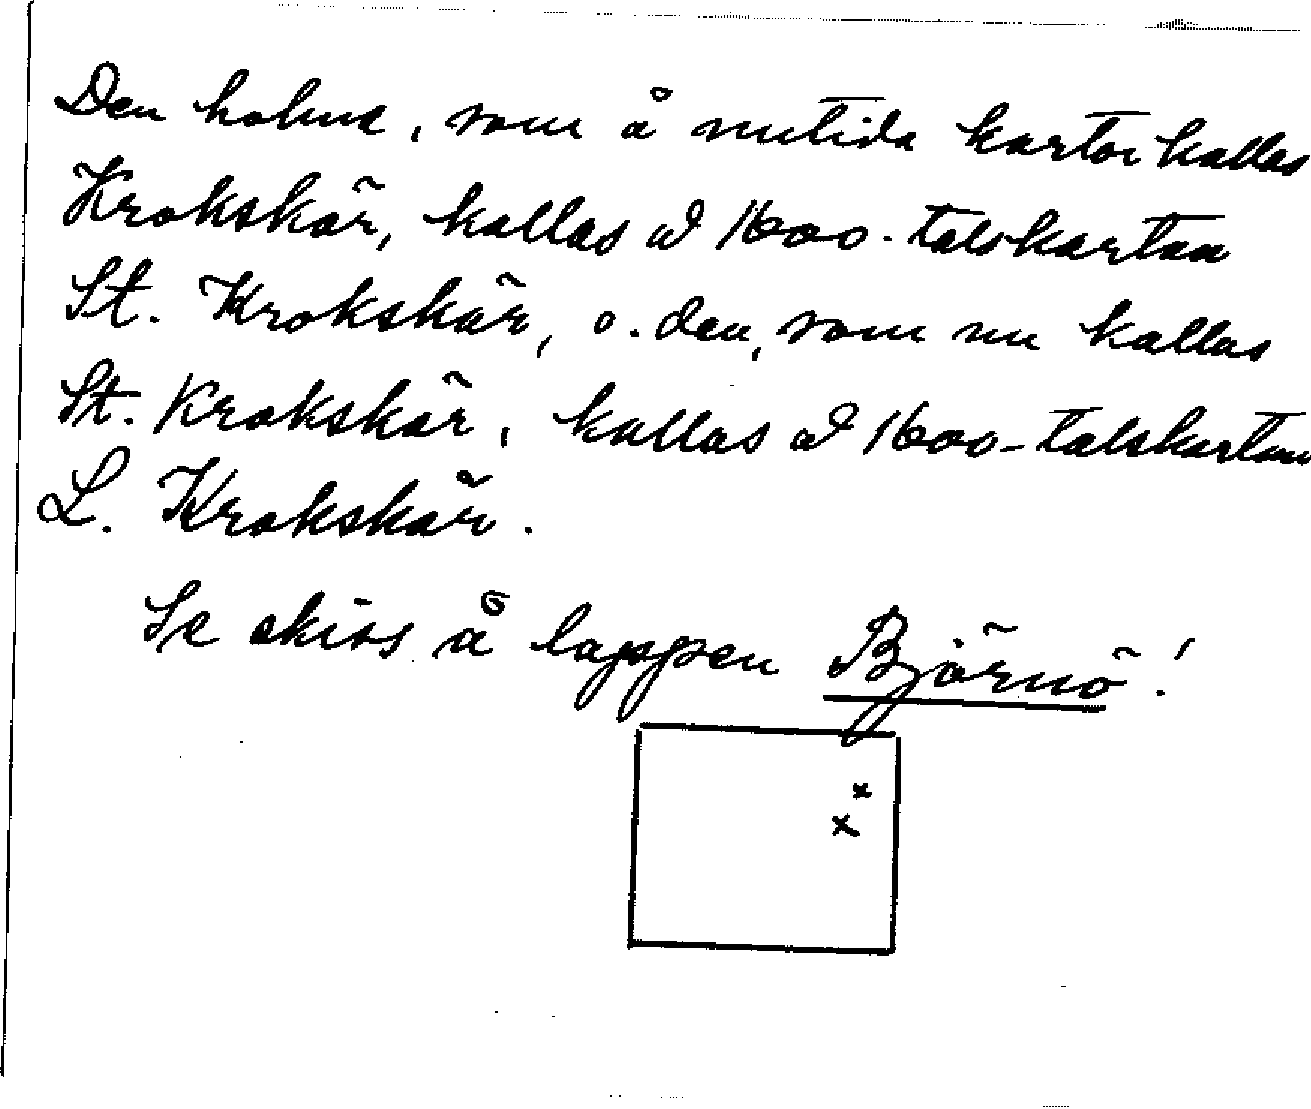 Den holme, som å nutida kartor kallas
Krokskär, kallas å 1600-talskartan
St. Krokskär, o. den, som nu kallas
St. Krokskär, kallas å 1600-talskartan
L. Krokskär.
Se skiss å lappen Björnö!
x
x